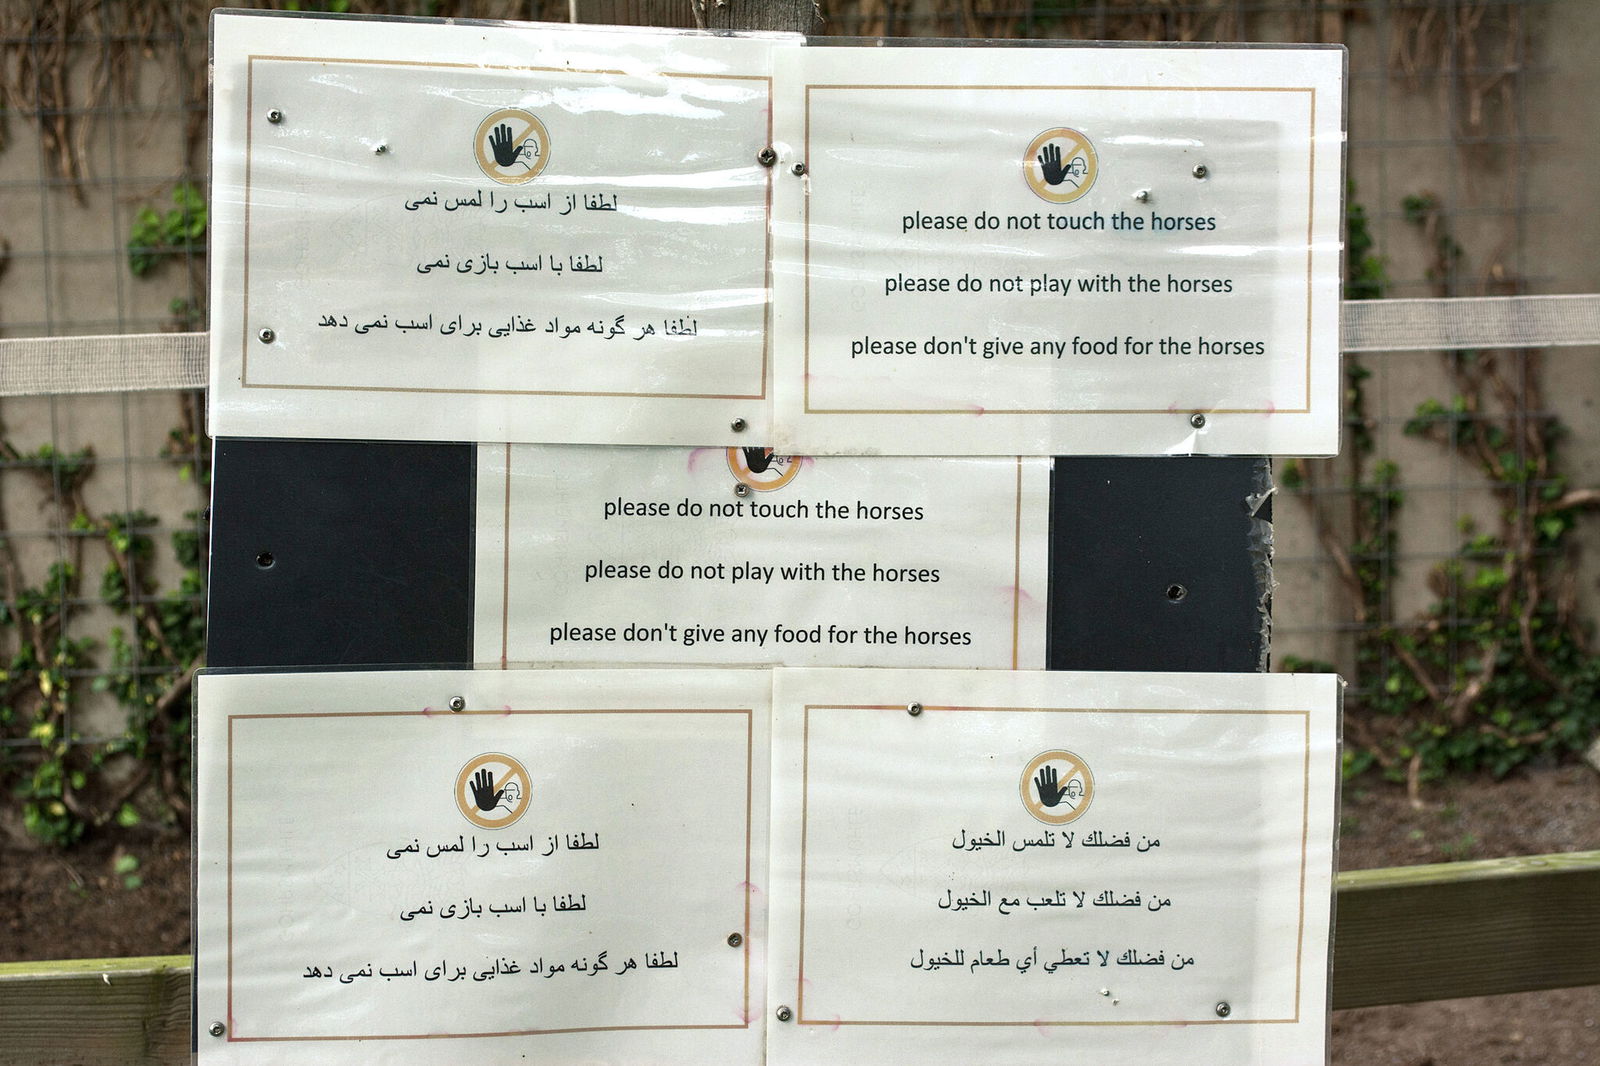 لطفا از اسب را لمس نمی
لطفا با اسب بازی نمی
لطفا هر گونه مواد غذایی برای اسب نمی دهد
please do not touch the horses
please do not play with the horses
please don't give any food for the horses
please do not touch the horses
please do not play with the horses
please don't give any food for the horses
لطفا از اسب را لمس نمی
لطفا با اسب بازی نمی
لطفا هر گونه مواد غذایی برای اسب نمی دهد
من فضلك لا تلمس الخيول
من فضلك لا تلعب مع الخيول
من فضلك لا تعطي أي طعام للخيول